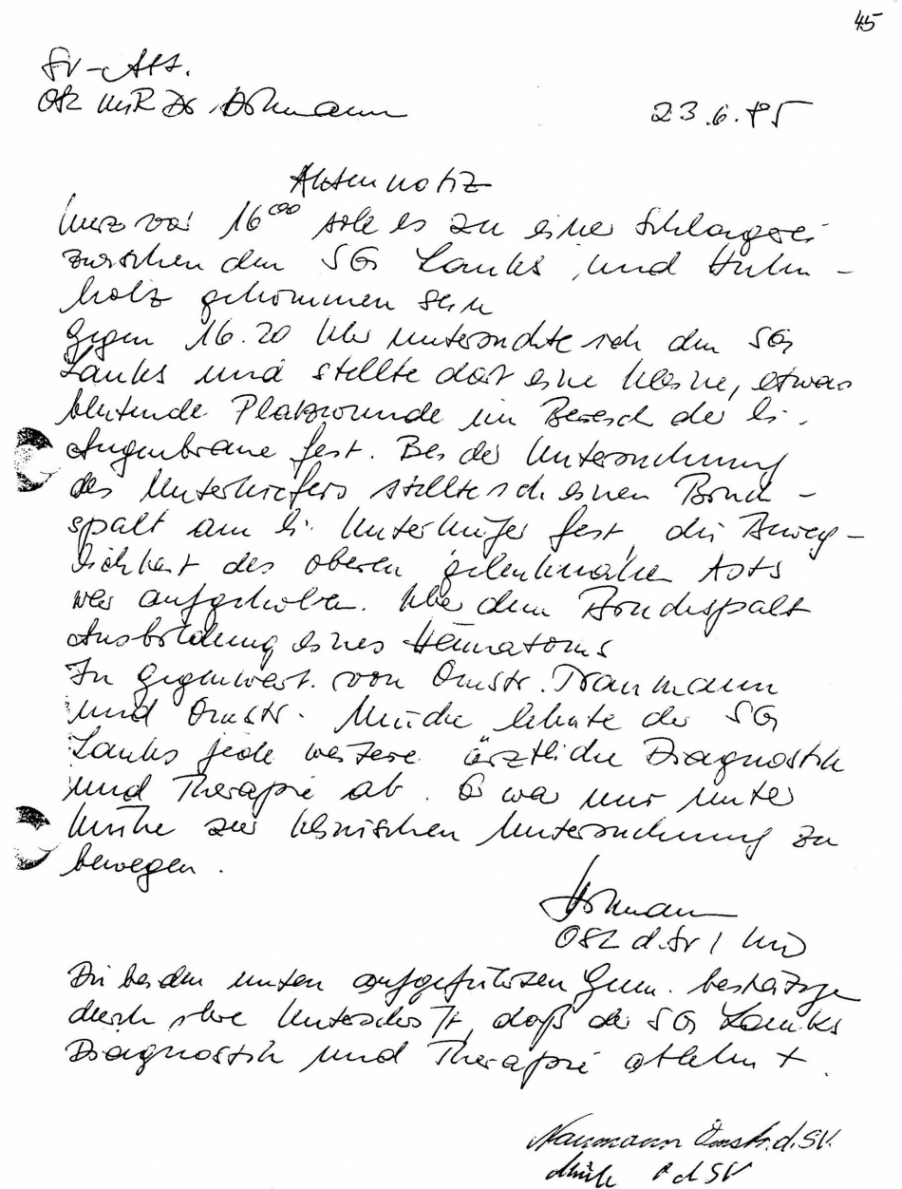 45
OSL MR Dr
23.6.85
Aktennotiz
Kurz vor 16⁰⁰ soll es zu einer Schlägerei
zwischen den SG Lauks und
holz gekommen sein
Gegen 16.20 Uhr untersuchte ich den SG
Lauks und stellte dort eine kleine, etwas
blutende Platzwunde im Bereich der li.
Augenbraue fest. Bei der Untersuchung
des Unterkiefers stellte ich einen Bruch-
spalt am li. Unterkiefer fest, die Beweg-
lichkeit des oberen gelenknahen Asts
war aufgehoben. Über dem Bruchspalt
Ausbildung eines Hämatoms
In Gegenwart von Omstr.
und Omstr. lehnte der SG
Lauks jede weitere ärztliche Diagnostik
und Therapie ab. Er war nur unter
Mühe zur klinischen Untersuchung zu
bewegen.
OSL d. SV
Die beiden unten aufgeführten Genn. bestätige
durch ihre Unterschrift, daß der SG Lauks
Diagnostik und Therapie ablehnt.
Naumann Omstr. d. SV.
d SV